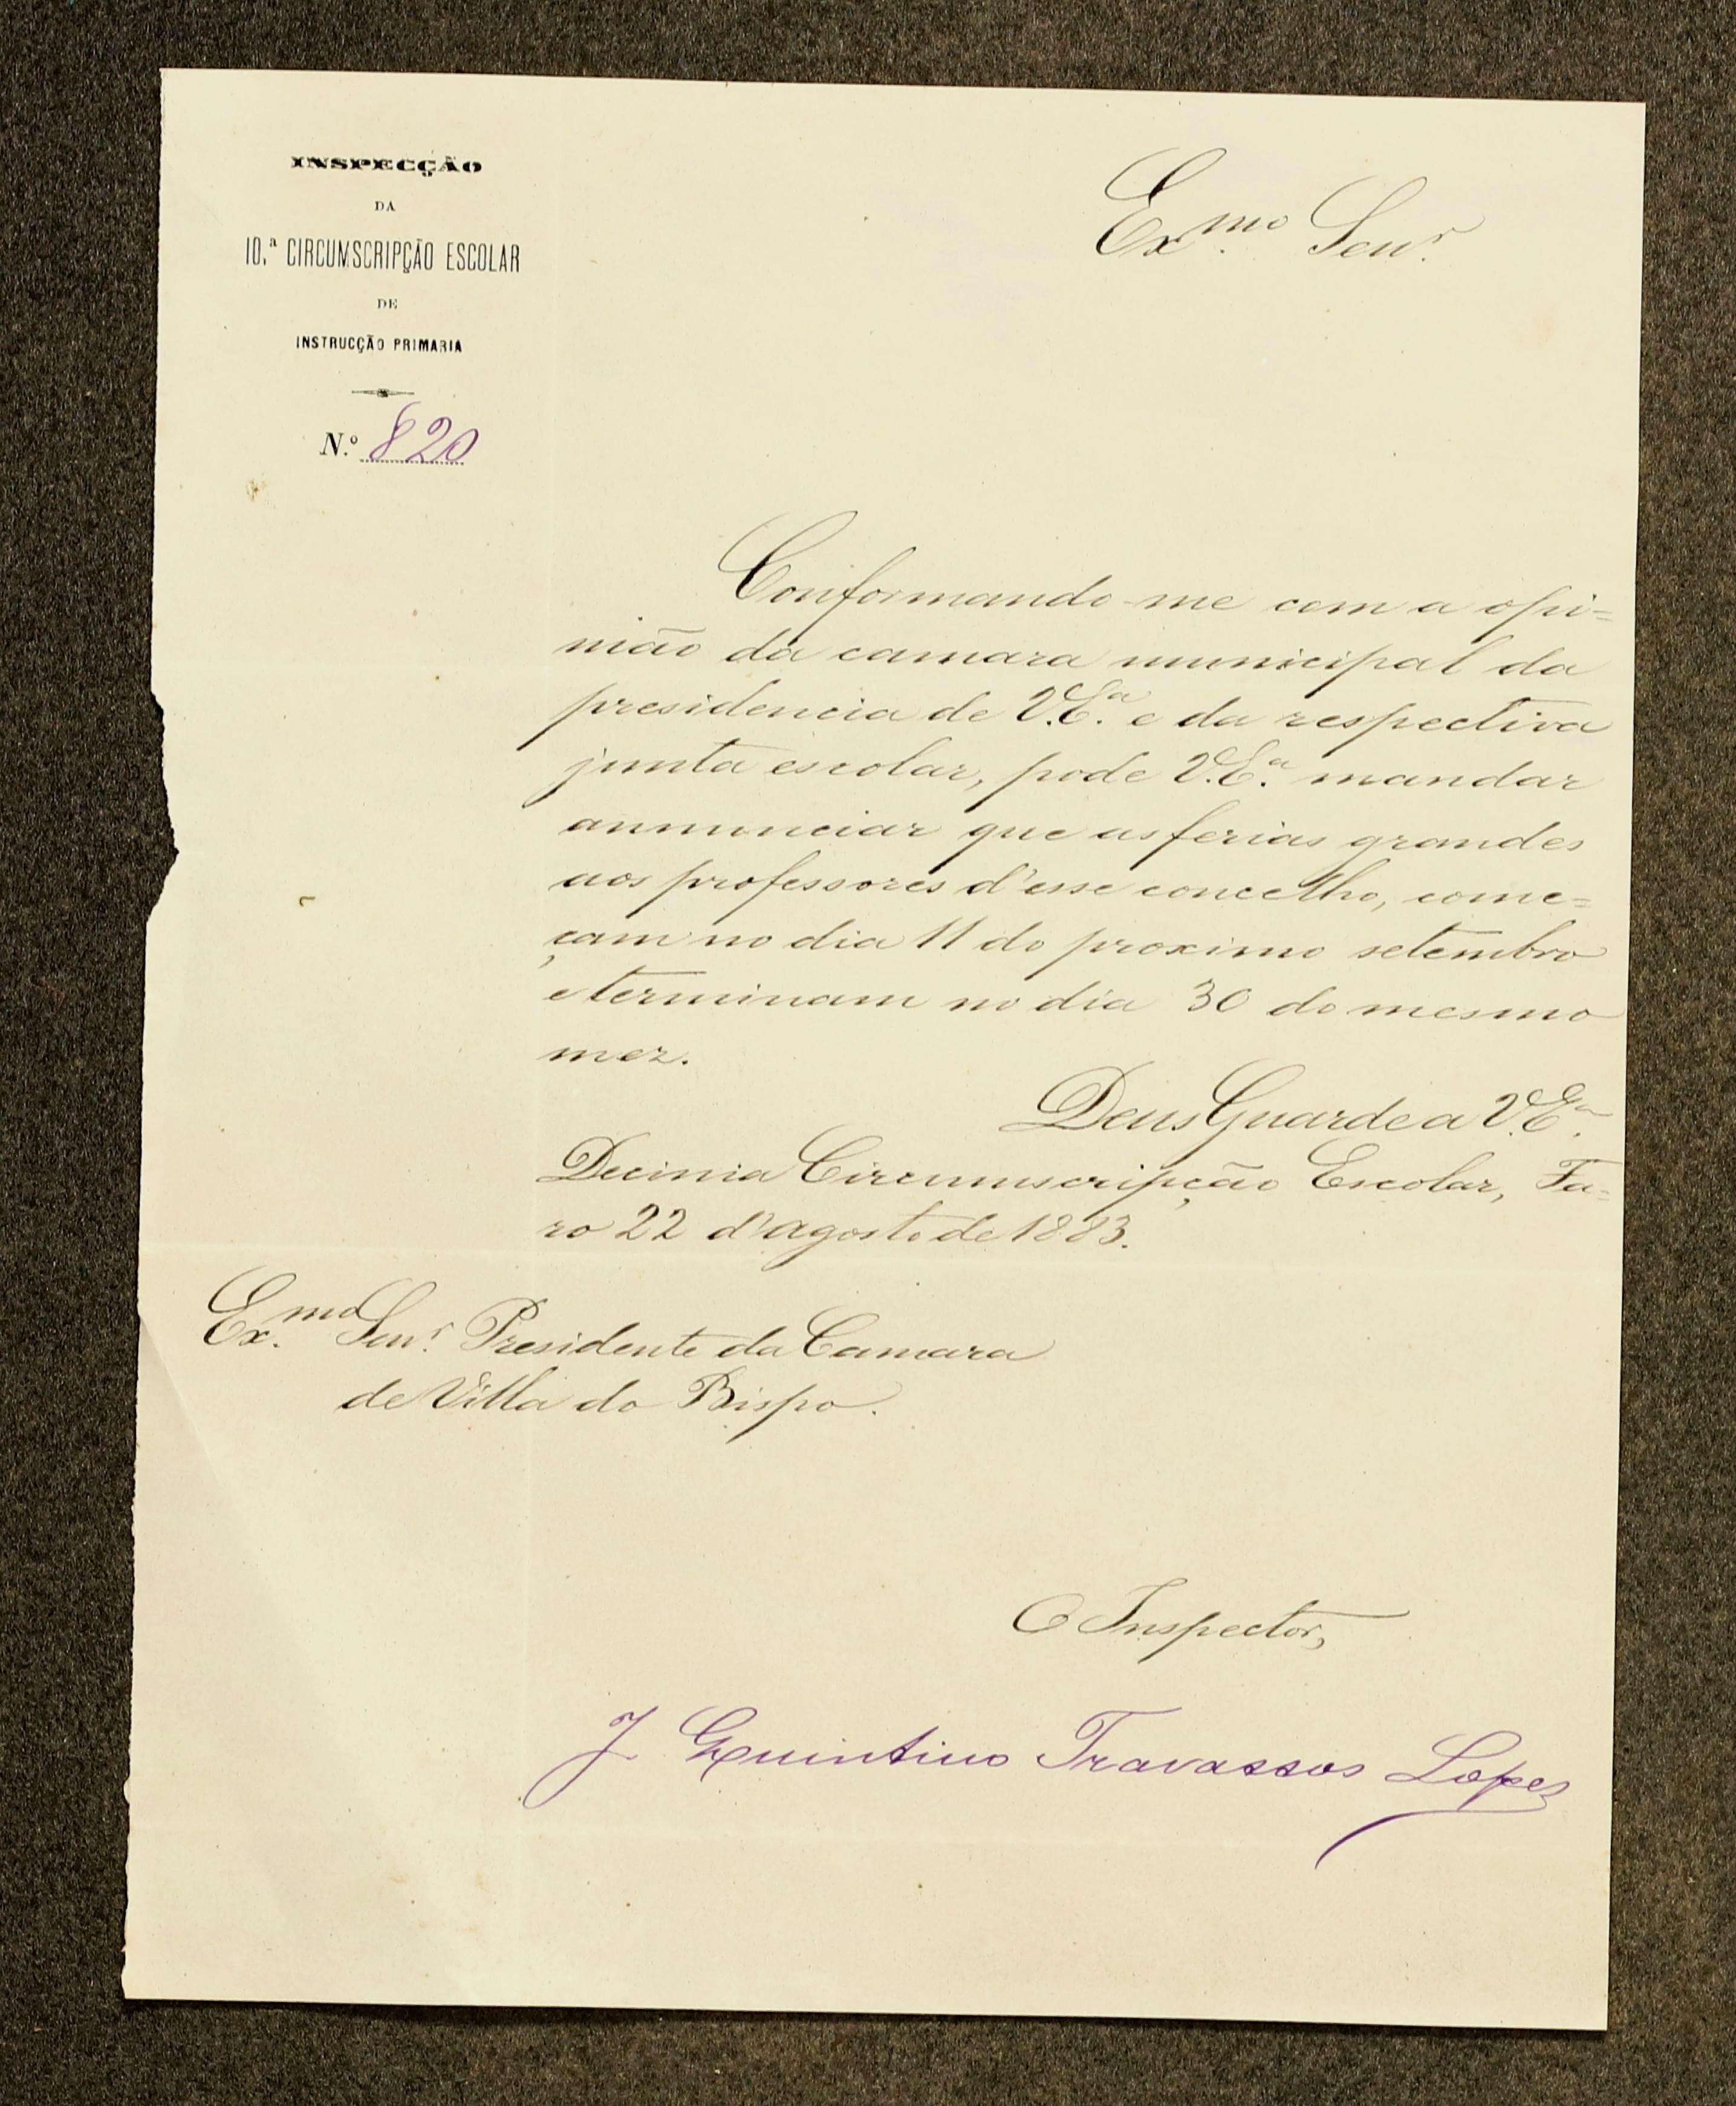 INSPECÇÃO
DA
10.ª CIRCUMSCRIPÇÃO ESCOLAR
DE
INSTRUCÇÃO PRIMARIA
N.º 820
Ex.mo Senr.
Conformando-me com a opi=
nião da camara municipal da
presidencia de V.E.ª e da respectiva
junta escolar, pode V.E.ª mandar
annunciar que as ferias grandes
aos professores d'esse concelho, come=
çam no dia 11 do proximo setembro
e terminam no dia 30 do mesmo
mez.
Deus Guarde a V.E.ª
Decima Circumscripção Escolar, Fa=
ro 22 d'agosto de 1883.
Ex.mo Senr. Presidente da Camara
de Villa do Bispo.
O Inspector,
J Quintino Travassos Lopes